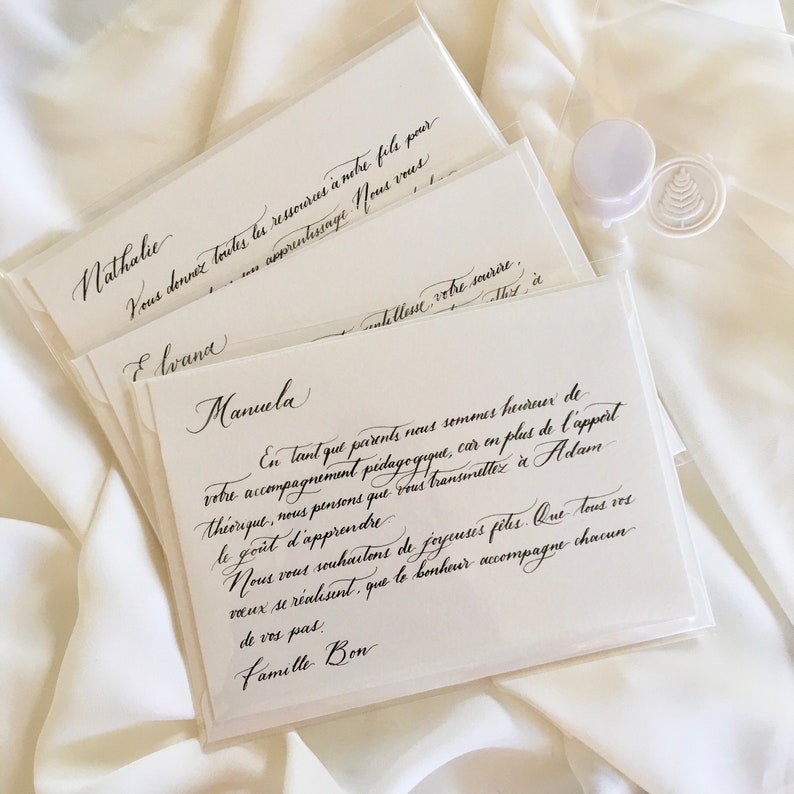 Nathalie
Vous donnez toutes les ressources à notre fils pour
son apprentissage. Nous vous
Elvana
gentillesse, votre sourire,
à
Manuela
En tant que parents nous sommes heureux de
votre accompagnement pédagogique, car en plus de l'apport
théorique, nous pensons que vous transmettez à Adam
le goût d'apprendre.
Nous vous souhaitons de joyeuses fêtes. Que tous vos
vœux se réalisent, que le bonheur accompagne chacun
de vos pas.
Famille Bon